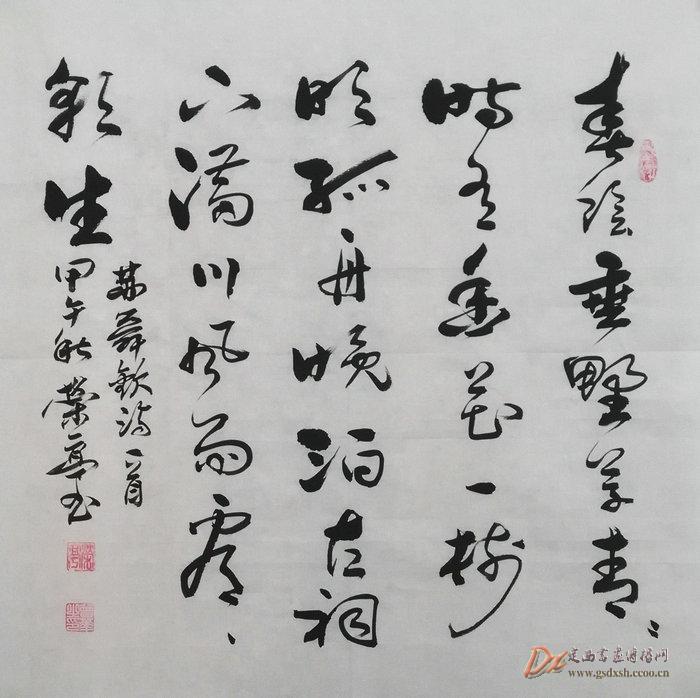 春陰垂野草青〻
時有幽花一樹
明孤舟晚泊古祠
下滿川風雨看
生
蘇舜欽詩一首
甲午秋榮亭书
定西書畫傳播网
www.gsdxsh.ccoo.cn